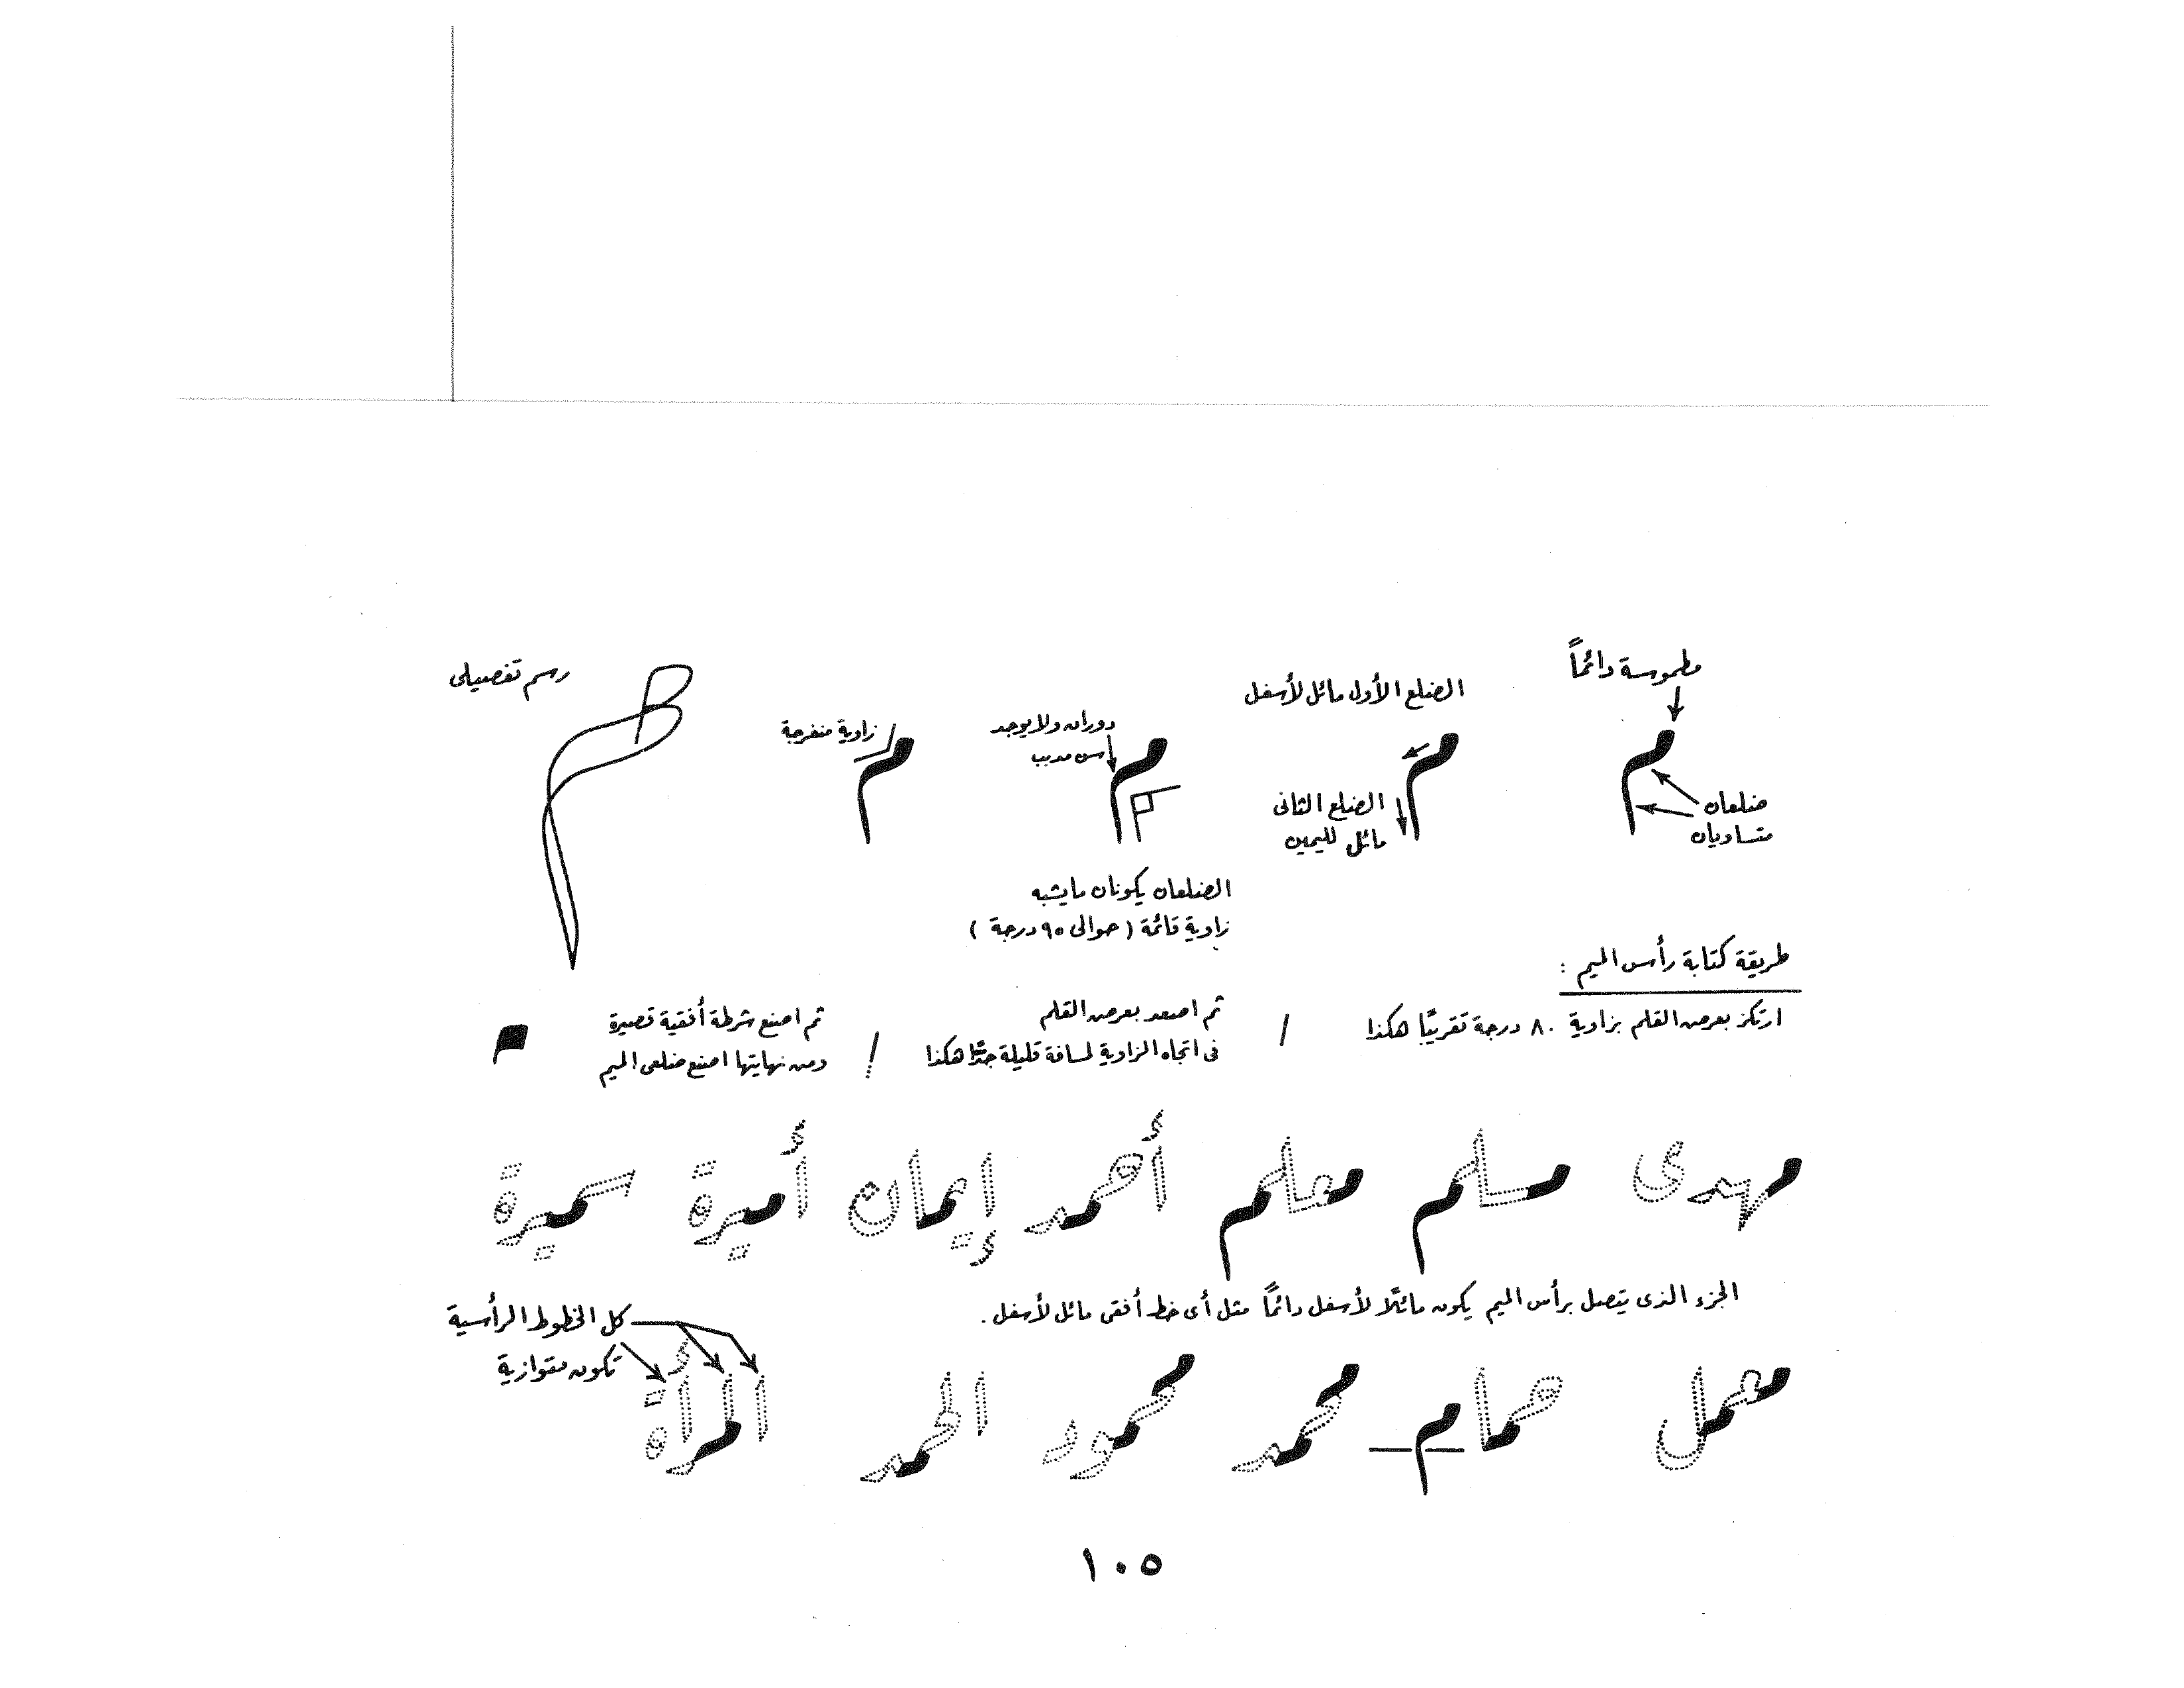 مطموسة دائماً
ضلعان
متساويان
الضلع الأول مائل لأسفل
الضلع الثانى
مائل لليمين
دوران ولا يوجد
سن مدبب
زاوية منفرجة
رسم تفصيلى
الضلعان يكونان ما يشبه
زاوية قائمة ( حوالى ٩٠ درجة )
طريقة كتابة رأس الميم :
ارتكز بعرض القلم بزاوية ٨٠ درجة تقريبًا هكذا
ثم اصعد بعرض القلم
فى اتجاه الزاوية لمسافة قليلة جدًّا هكذا
ثم اصنع شرطة أفقية قصيرة
ومن نهايتها اصنع ضلعى الميم
مهدى مسلم معلم أحمد إيمان أميرة سميرة
الجزء الذى يتصل برأس الميم يكون مائلًا لأسفل دائماً مثل أى خط أفقى مائل لأسفل .
كل الخطوط الرأسية
تكون متوازية
مهمل همام محمد محمود الحمد المرأة
١٠٥